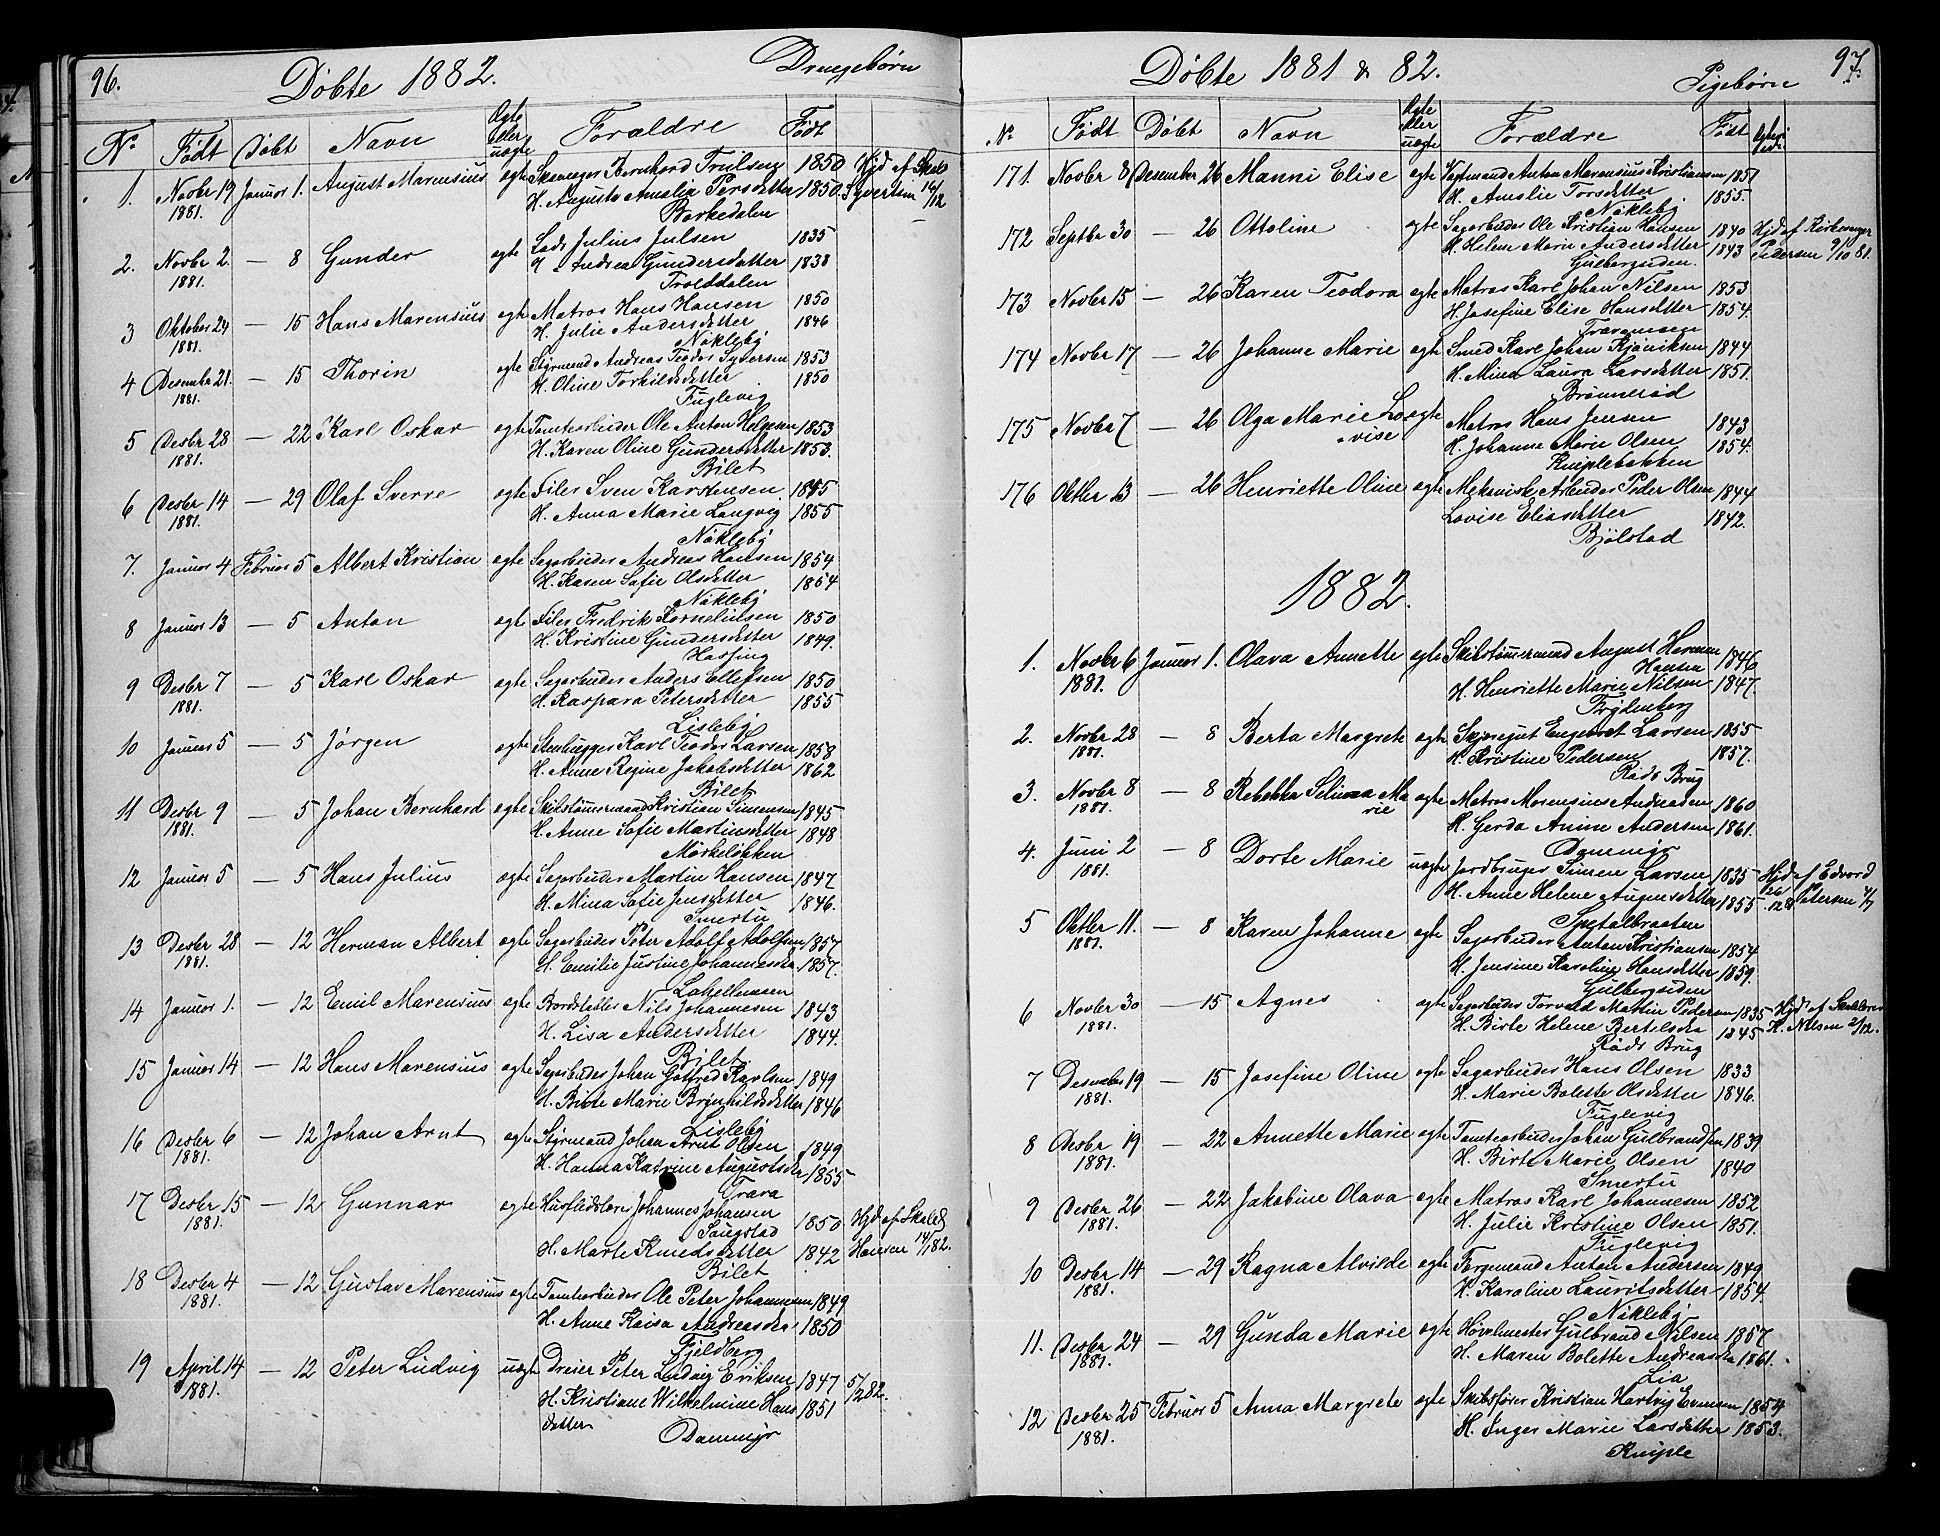 96.
Döbte 1882.
Drengebørn
No Født Döbt Navn Ægte eller uægte Forældre Født
1. Novbr 19 1881. Januar 1. August Marensius ægte Bernhard Truilsen 1850 Hjd af Skol
H. Augusta Amalia Persdatter 1850 Syvertsen 16/12
Borkedalen
2. Novbr 2. 1881. — 8 Gunder ægte Lods Julius Julsen 1835
H. Andrea Gundersdatter 1838
Trolddalen
3 Oktober 24 1881. — 15 Hans Marensius ægte Matros Hans Hansen 1850
H. Julie Andersdatter 1846
Nöklebÿ
4 Desember 21. 1881. — 15 Thorin ægte Styrmand Andreas Teodor Syversen 1853
H. Oline Torkildsdatter 1850
Fuglevig
5 Desbr 28 1881. — 22 Karl Oskar ægte Tomtearbeider Ole Anton Helgesen 1853
H. Karen Oline Gundersdatter 1853.
Bilet
6 Desbr 14 1881. — 29 Olaf Sverre ægte Filer Sven Karstensen 1855
H. Anna Marie Langvig 1855
Nöklebÿ
7. Januar 4 Februar 5 Albert Kristian ægte Sagarbeider Andreas Hansen 1854
H. Karen Sofie Olsdatter 1854
Nöklebÿ
8 Januar 13 — 5 Anton ægte Filer Fredrik Kornelinsen 1850
H. Kristine Gundersdatter 1849.
Hassing
9 Desbr 7 1881. — 5 Karl Oskar ægte Sagarbeider Anders Ellefsen 1850
H. Kaspara Petersdatter 1855
Lislebÿ
10 Januar 5 — 5 Jörgen ægte Stenhugger Karl Teodor Larsen 1858
H. Anne Regine Jakobsdatter 1862
Bilet
11 Desbr 9 1881. — 5 Johan Bernhard ægte Skibstömmermand Kristian Simensen 1845
H. Anne Sofie Martinsdatter 1848
Mörkelökken
12 Januar 5 — 5 Hans Julius ægte Sagarbeider Martin Hansen 1847
H. Mina Sofie Jensdatter 1846.
Smertu
13 Desbr 28 1881. — 12 Herman Albert ægte Sagarbeider Peter Adolf Adolfsen 1857
H. Emilie Justine Johannesda 1857.
14 Januar 1. — 12 Emil Marensius ægte Bordstabler Nils Johannesen 1843
H. Lisa Andersdatter 1844.
Bilet
15 Januar 14 — 12 Hans Marensius ægte Sagarbeider Johan Gotfred Karlsen 1849
H. Birte Marie Brynhildsdatter 1846
Lislebÿ
16 Desbr 6 1881. — 12 Johan Arnt ægte Styrmand Johan Arnt Olsen 1849
H. Hanna Katrine Augustsda 1855
Trara
17 Desbr 15 1881. — 12 Gunnar ægte Husflidslærer Johannes Johansen
Saugstad 1850 Hjd af Skolel
H. Marte Knudsdatter 1842 Hansen 14/1 82.
Bilet
18 Desbr 4 1881. — 12 Gustav Marensius ægte Tomtearbeider Ole Peter Johannesen 1849
H. Anne Kaisa Andreasda 1850
Fjeldberg
19 April 14 1881. — 12 Peter Ludvig uægte Dreier Peter Ludvig Eriksen 1847 5/12 82.
H. Kristiane Wilhelmine Hans 1851
datter
Dammyr
97.
Döbte 1881 & 82.
Pigebørn
No Født Döbt Navn Ægte eller uægte Forældre Født
171. Novbr 8 Desember 26 Manni Elise ægte Vegtmand Anton Marensius Kristiansen 1851
H. Amalie Torsdatter 1855.
Nöklebÿ
172 Septbr 30 — 26 Ottoline ægte Sagarbeider Ole Kristian Hansen 1840 Hjd af Kirkesanger
H. Helene Marie Andersdatter 1843 Pedersen 9/10 81.
Gulbergsiden.
173 Novbr 15 — 26 Karen Teodora ægte Matros Karl Johan Nilsen 1853
H. Josefine Elise Hansdatter 1854.
174 Novbr 17 — 26 Johanne Marie ægte Smed Karl Johan Kjöniksen 1844
H. Mina Laura Larsdatter 1851.
Brönneröd
175 Novbr 7 — 26 Olga Marie Lovise ægte Matros Hans Jensen 1843
H. Johanne Marie Olsen 1854.
Kniplebakken
176 Oktbr 13 — 26 Henriette Oline ægte Mekanisk Arbeider Peder Olsen 1844
Lovise Eliasdatter 1842.
Bjölstad
1882.
1. Novbr 6 1881. Januar 1. Olava Annette ægte Skibstömmermand August Herman
Hansen 1846
H. Henriette Marie Nilsen 1847.
Frÿdenberg
2. Novbr 28 1881. — 8 Berta Margrete ægte Skjöregut Engebret Larsen 1855
H. Kristine Pedersen 1857.
Råds Brug
3. Novbr 8 1881. — 8 Rebekka Selima Marie ægte Matros Marensius Andreasen 1860
H. Gerda Amine Andersen 1861.
Dammyr
4. Juni 2 1881. — 8 Dorte Marie uægte Jordbruger Simen Larsen 1835 Hjd af Edvard
H. Anne Helene Augensdatter 1855 Petersen 4/7
Spetalbraaten
5 Oktbr 11. 1881. — 8 Karen Johanne ægte Sagarbeider Anton Kristiansen 1854
H. Jensine Karoline Hansdatter 1859.
Gulbergsiden
6 Novbr 30 1881. — 15 Agnes ægte Sagarbeider Torvald Martin Pedersen 1835 Hjd af Skolelærer
H. Birte Helene Bertelsda 1845 H. Nilsen 2/12.
Råds Brug
7 Desember 19 1881. — 15 Josefine Oline ægte Sagarbeider Hans Olsen 1833
H. Marie Bolette Olsdatter 1846.
Fuglevig
8 Desbr 19 1881. — 22 Annette Marie ægte Tomtearbeider Johan Gulbrandsen 1839
H. Birte Marie Olsen 1840
Smertu
9 Desbr 26 1881. — 22 Jakobine Olava ægte Matros Karl Johannesen 1852
H. Julie Kristine Olsen 1851.
Fuglevig
10 Desbr 14 1881. — 29 Ragna Alvilde ægte Færgemand Anton Andersen 1849
H. Karoline Lauritsdatter 1854.
Nöklebÿ
11. Desbr 24 1881. — 29 Gunda Marie ægte Hövelmester Gulbrand Nilsen 1857
H. Maren Bolette Andreasda 1861.
Lia
12 Desbr 25 1881. Februar 5 Anna Margrete ægte Skibsförer Kristian Hartvig Evensen 1854
H. Inger Marie Larsdatter 1853.
Kniple